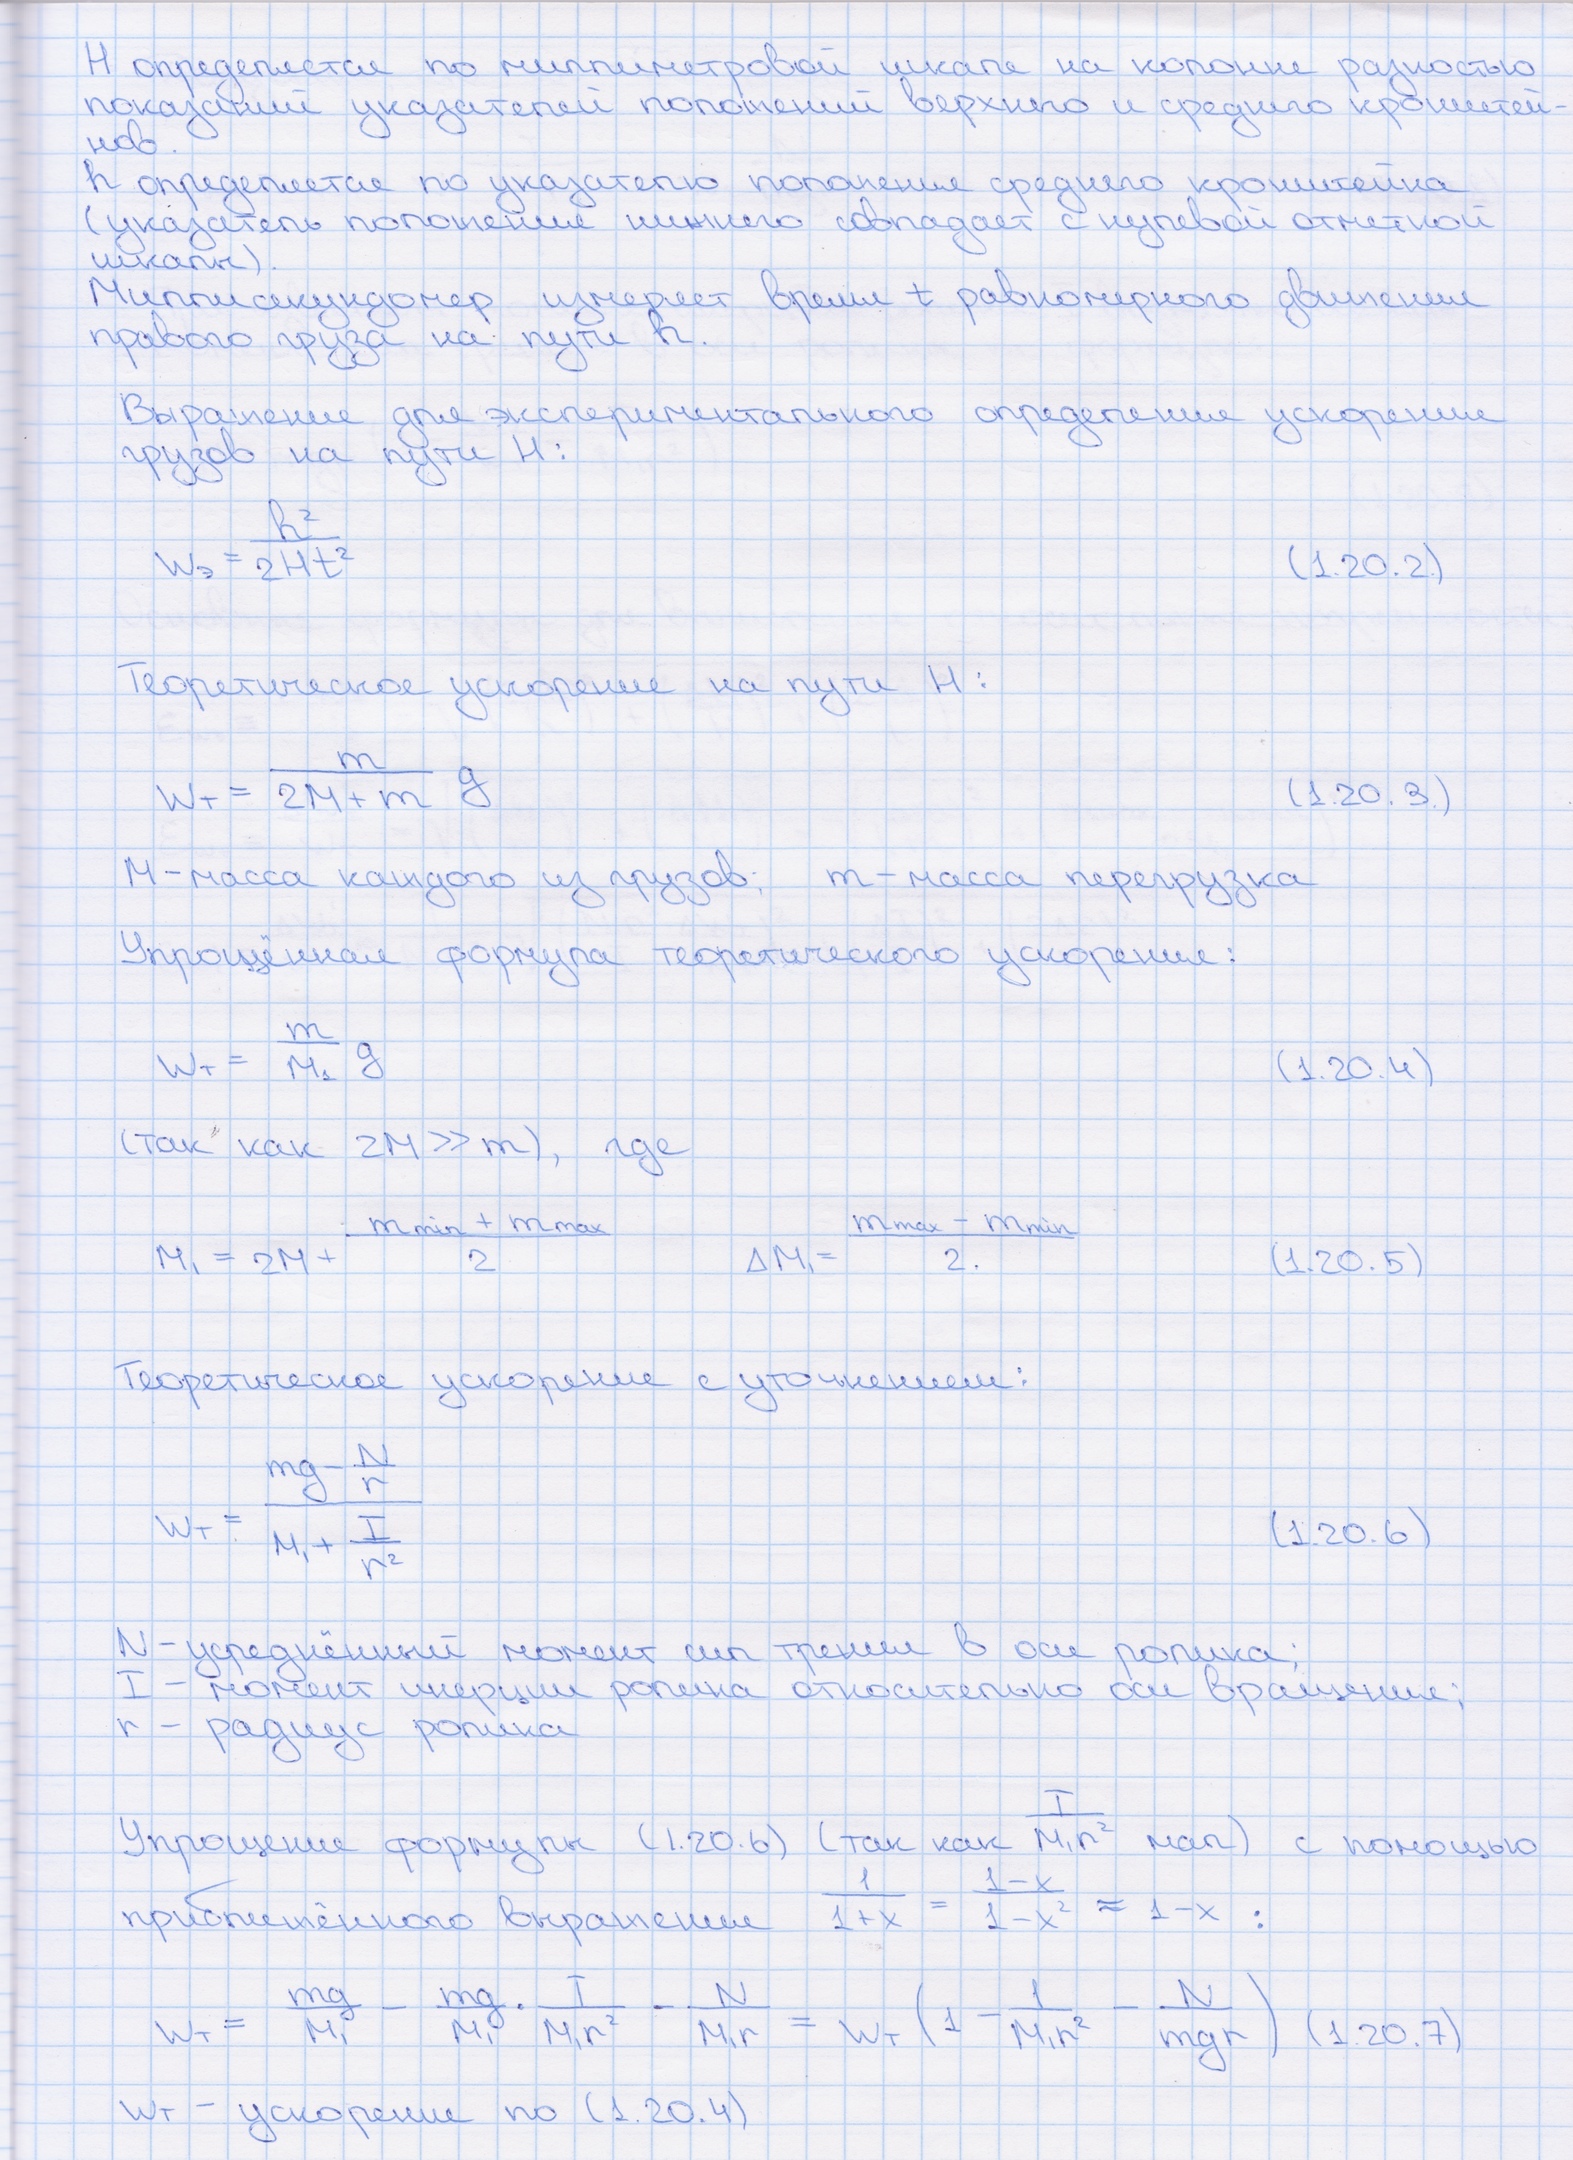 H определяется по миллиметровой шкале на колонне разностью
показаний указателей положений верхнего и среднего кронштей-
нов.
h определяется по указателю положения среднего кронштейна
(указатель положения нижнего совпадает с нулевой отметкой
шкалы).
Миллисекундомер измеряет время t равномерного движения
правого груза на пути h.
Выражение для экспериментального определения ускорения
грузов на пути H:
Wэ = h²/(2Ht²) (1.20.2)
Теоретическое ускорение на пути H:
Wт = m/(2M+m) g (1.20.3)
M – масса каждого из грузов; m – масса перегрузка
Упрощённая формула теоретического ускорения:
Wт = m/M₁ g (1.20.4)
(так как 2M >> m), где
M₁ = 2M + (m min + m max)/2 ΔM₁ = (m max – m min)/2. (1.20.5)
Теоретическое ускорение с уточнением:
Wт = (mg – N/r)/(M₁ + I/r²) (1.20.6)
N – усреднённый момент сил трения в оси ролика;
I – момент инерции ролика относительно оси вращения;
r – радиус ролика
Упрощение формулы (1.20.6) (так как I/(M₁r²) мал) с помощью
приближённого выражения 1/(1+x) = (1–x)/(1–x²) ≈ 1–x :
Wт = mg/M₁ – mg/M₁ · I/(M₁r²) – N/(M₁r) = Wт (1 – 1/(M₁r²) – N/(mgr)) (1.20.7)
Wт – ускорение по (1.20.4)